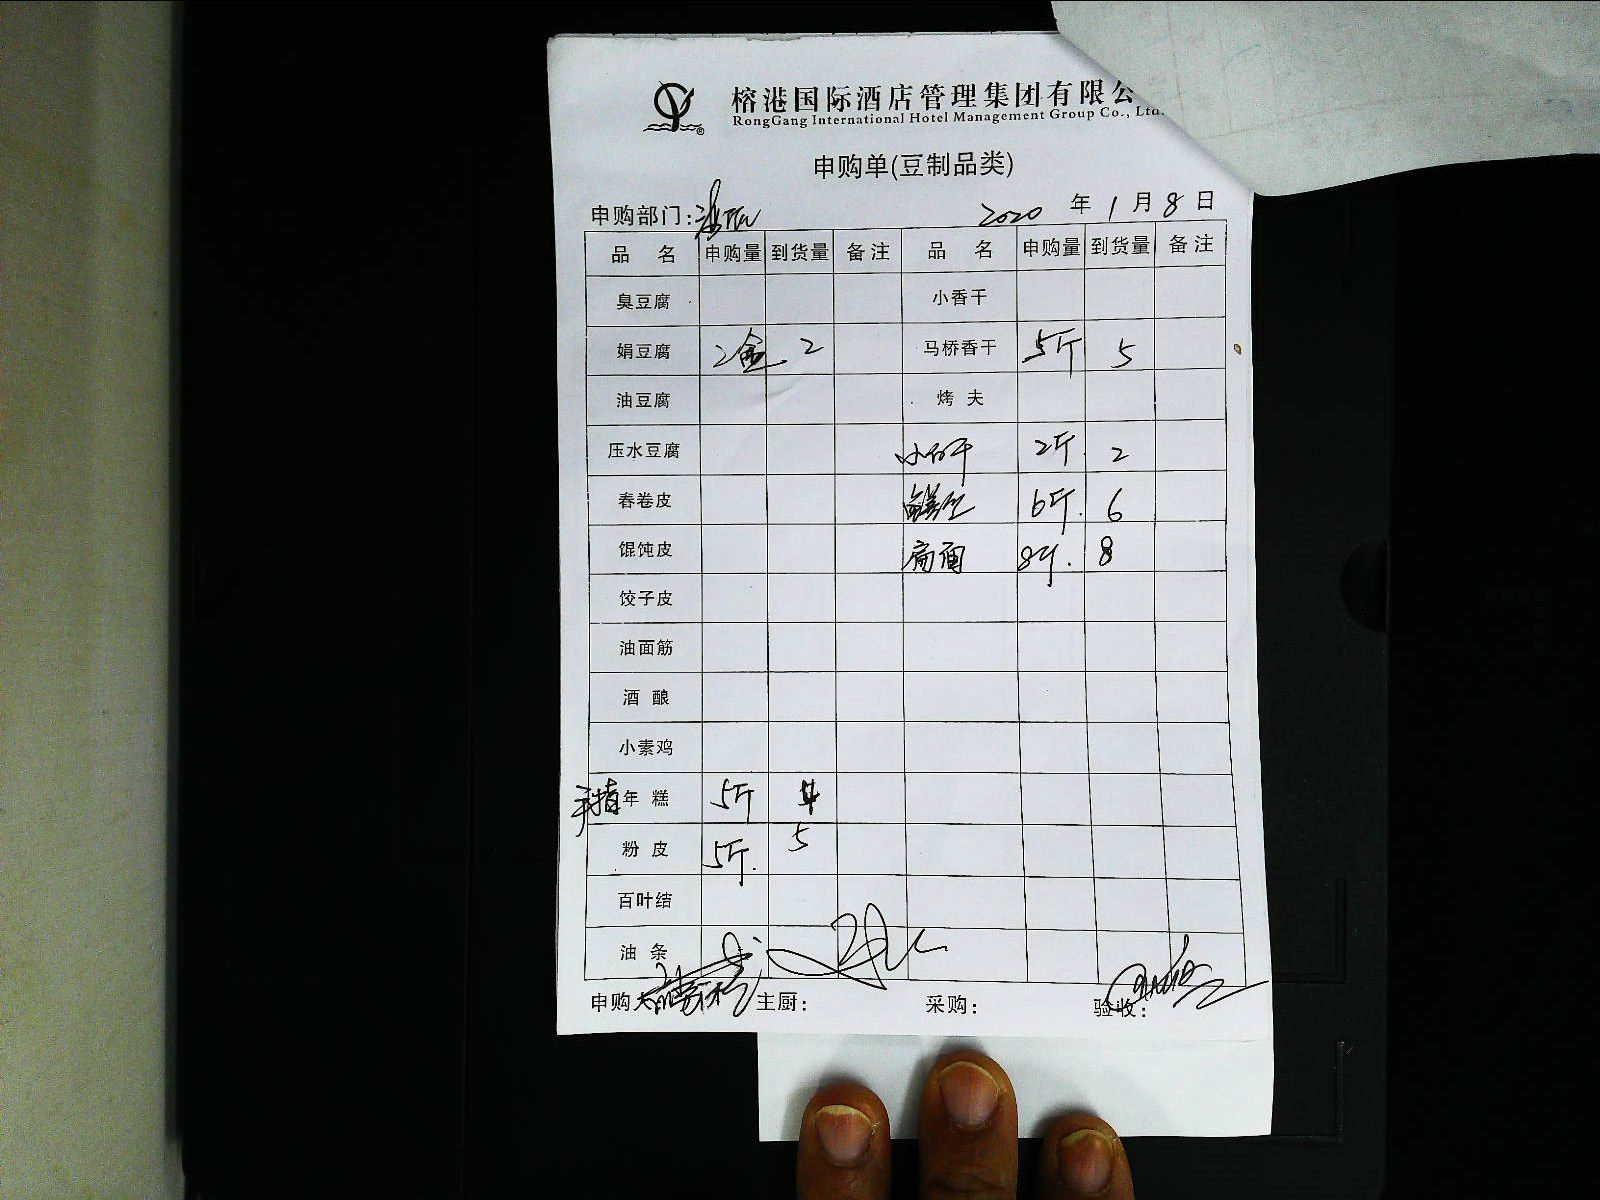 榕港国际酒店管理集团有限公
RongGang International Hotel Management Group Co., Ltd.
申购单(豆制品类)
申购部门: 2020 年 1 月 8 日
品 名 申购量 到货量 备注 品 名 申购量 到货量 备注
臭豆腐 小香干
娟豆腐 2盒 2 马桥香干 5斤 5
油豆腐 烤 夫
压水豆腐 小白干 2斤 2
春卷皮 6斤 6
馄饨皮 8斤 8
饺子皮
油面筋
酒 酿
小素鸡
年 糕 5斤
粉 皮 5斤 5
百叶结
油 条
申购 主厨: 采购: 验收: